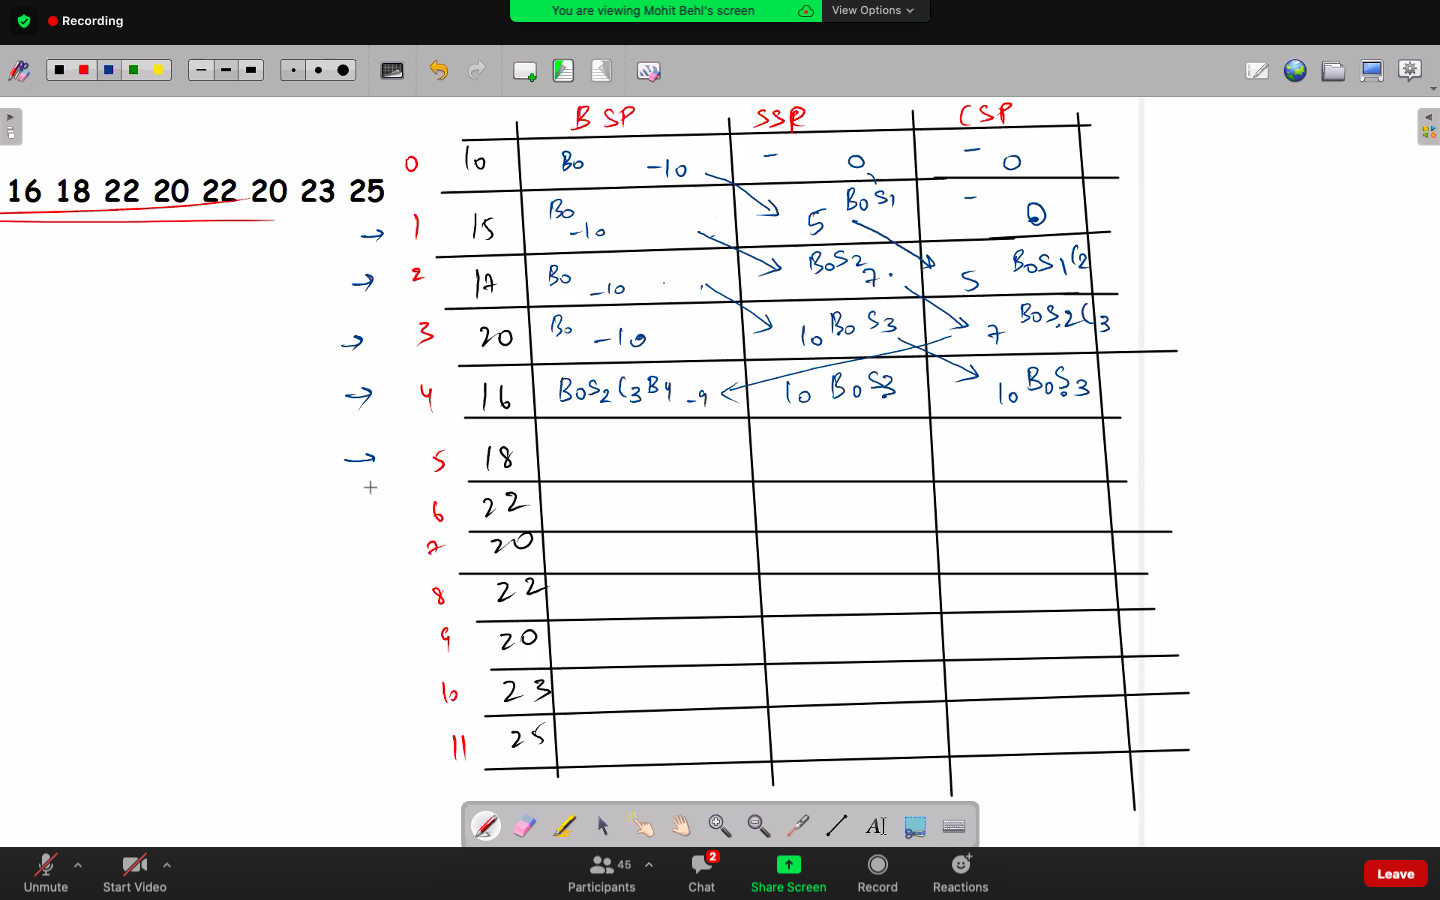 Recording
You are viewing Mohit Behl's screen
View Options
16 18 22 20 22 20 23 25
BSP SSP CSP
0 10 B0 -10 - 0 - 0
1 15 B0 -10 5 B0S1 - 0
2 17 B0 -10 B0S2 7 5 B0S1C2
3 20 B0 -10 10 B0S3 7 B0S2C3
4 16 B0S2C3B4 -9 10 B0S3 10 B0S3
5 18
6 22
7 20
8 22
9 20
10 23
11 25
Unmute
Start Video
45
Participants
2
Chat
Share Screen
Record
Reactions
Leave